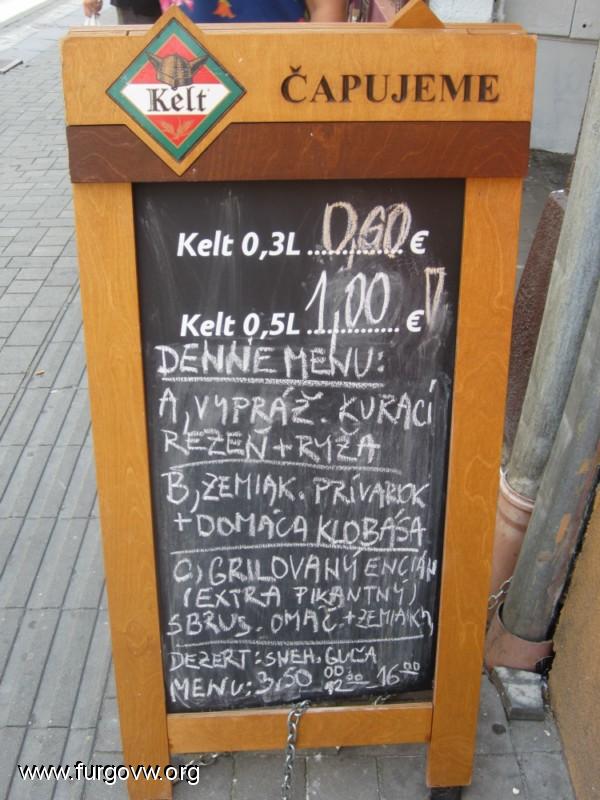 Kelt
ČAPUJEME
Kelt 0,3L ............. 0,60 €
Kelt 0,5L ............. 1,00 €
DENNÉ MENU:
A, VYPRÁŽ. KURACÍ
REZEŇ + RYŽA
B, ZEMIAK. PRÍVAROK
+ DOMÁCA KLOBÁSA
C, GRILOVANÝ ENCIÁN
(EXTRA PIKANTNÝ)
S BRUS. OMÁČ. + ZEMIAKY
DEZERT: SNEH. GUĽA
MENU: 3,50 OD 12 00 - 16 00
www.furgovw.org